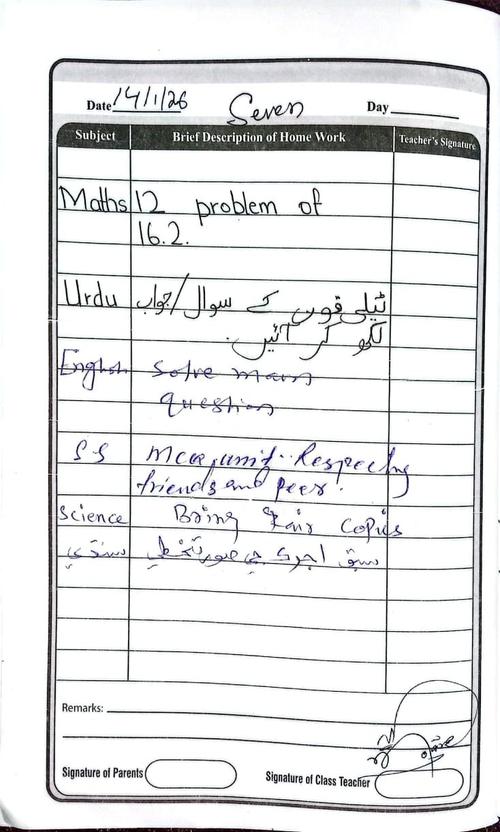 Date 14/1/26 Seven Day
Subject Brief Description of Home Work Teacher's Signature
Maths 12 problem of
16.2.
Urdu ٹیلی فون کے سوال/جواب
لکھ کر آئیں.
English Solve
question
SS Mcqs unit Respecting
friends and peer.
Science Bring Fair Copies
سبق
Remarks:
Signature of Parents Signature of Class Teacher